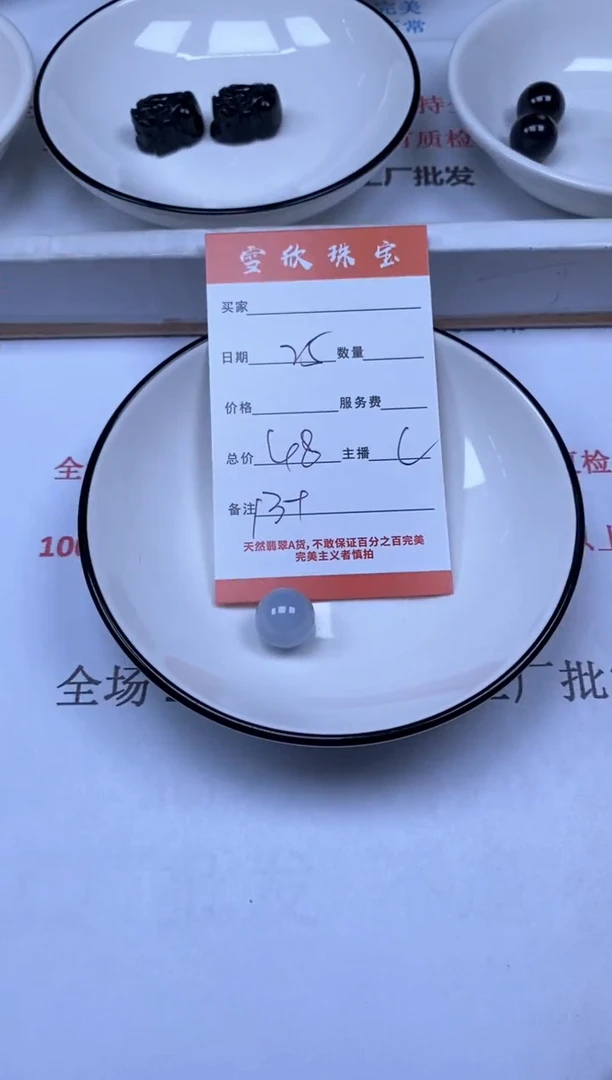 完美
常
持
质检
厂批发
雪欣珠宝
买家
日期 25 数量
价格 服务费
总价 48 主播
备注
天然翡翠A货,不敢保证百分之百完美
完美主义者慎拍
全
检
100
上
全场
厂批